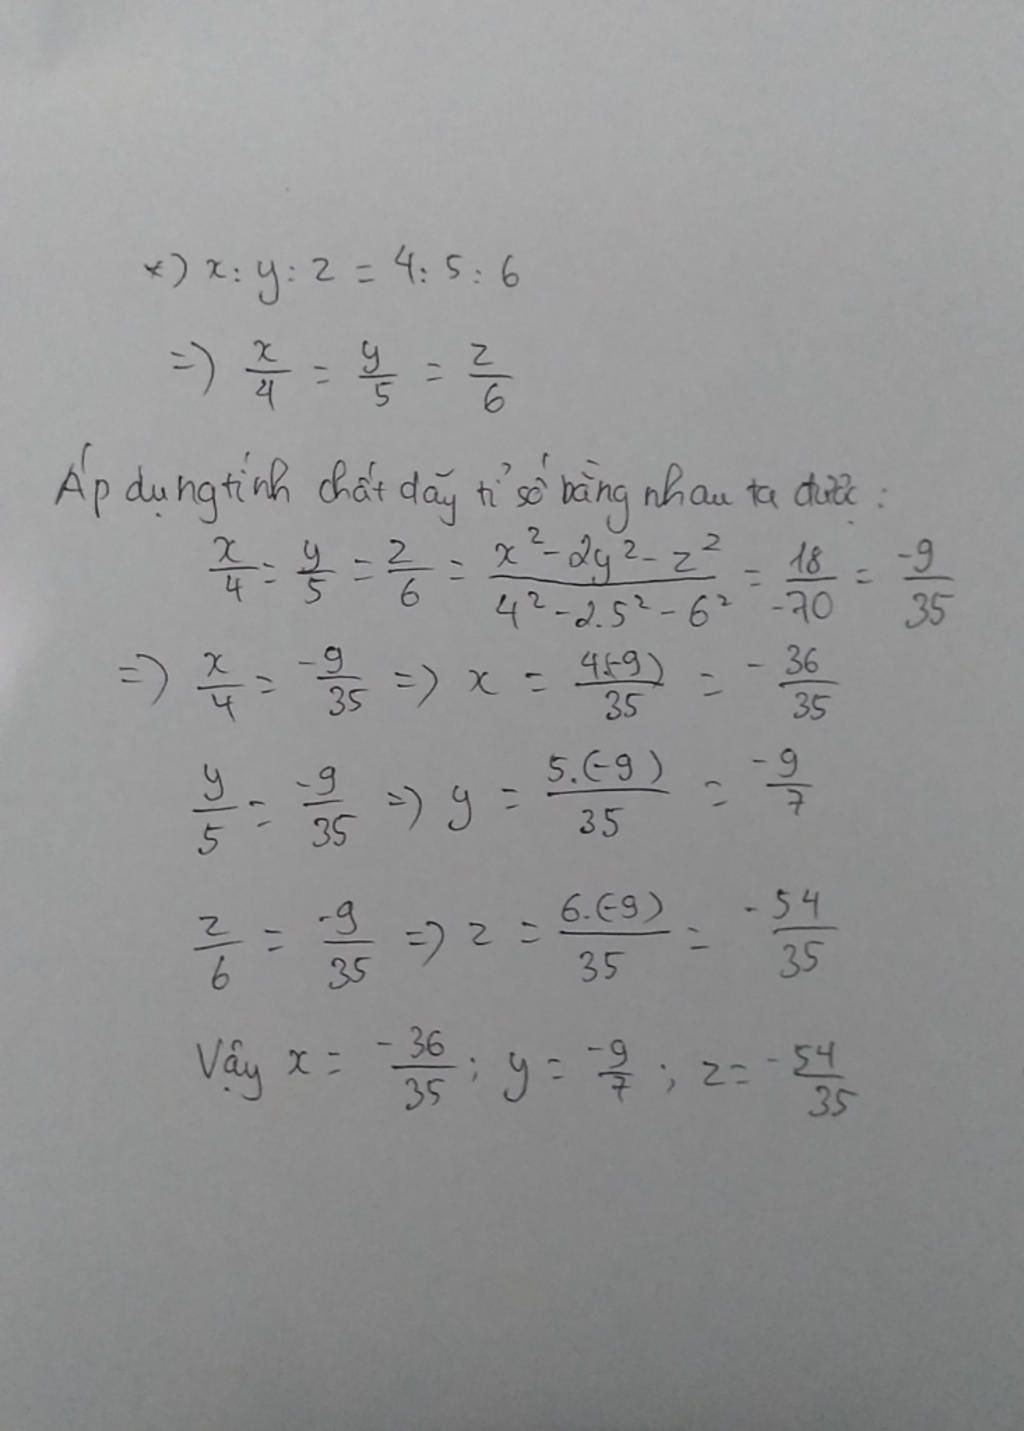 *) x : y : z = 4 : 5 : 6
=) x/4 = y/5 = z/6
Áp dụng tính chất dãy tỉ số bằng nhau ta được :
x/4 = y/5 = z/6 = (x² - 2y² - z²)/(4² - 2.5² - 6²) = 18/-70 = -9/35
=) x/4 = -9/35 =) x = 4(-9)/35 = -36/35
y/5 = -9/35 =) y = 5.(-9)/35 = -9/7
z/6 = -9/35 =) z = 6.(-9)/35 = -54/35
Vậy x = -36/35 ; y = -9/7 ; z = -54/35